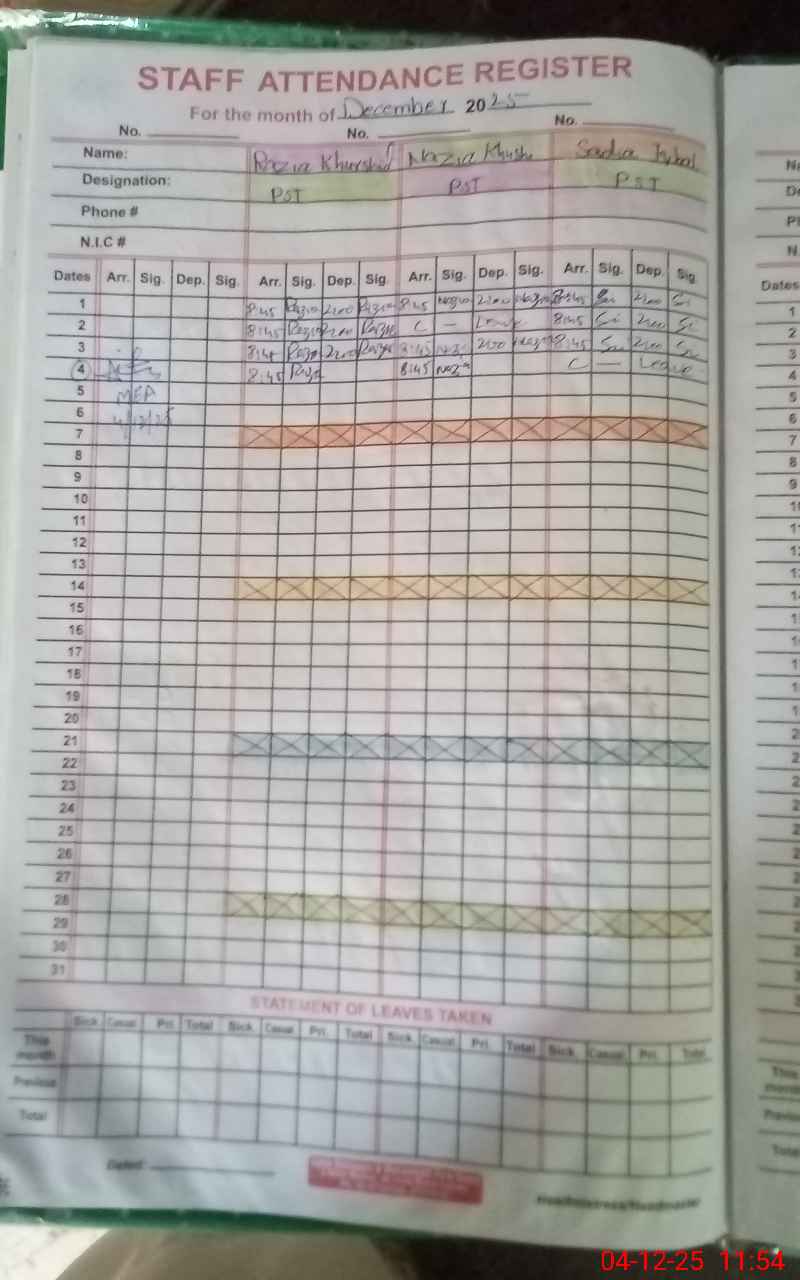 STAFF ATTENDANCE REGISTER
For the month of December 2025
No. No. No.
Name: Razia Khurshid Nazia Khushi Sadia Iqbal
Designation: PST PST PST
Phone #
N.I.C #
Dates Arr. Sig. Dep. Sig. Arr. Sig. Dep. Sig. Arr. Sig. Dep. Sig. Arr. Sig. Dep. Sig.
1 8:45 Razia 2:00 Razia 8:45 Nazia 2:00 Nazia 8:45 2:00
2 8:45 Razia 2:00 Razia C — Leave 8:45 2:00
3 8:45 Razia 2:00 Razia 8:45 Nazia 2:00 Nazia 8:45 2:00
4 8:45 Razia 8:45 Nazia C — Leave
5 MEA
6 4/12/25
7
8
9
10
11
12
13
14
15
16
17
18
19
20
21
22
23
24
25
26
27
28
29
30
31
STATEMENT OF LEAVES TAKEN
Sick. Casual. Pri. Total Sick. Casual. Pri. Total Sick. Casual. Pri. Total Sick. Casual. Pri. Total
This month
Previous
Total
Dated:
Headmistress/Headmaster
Dates
1
2
3
4
5
6
7
8
9
This
Previous
Total
04-12-25 11:54